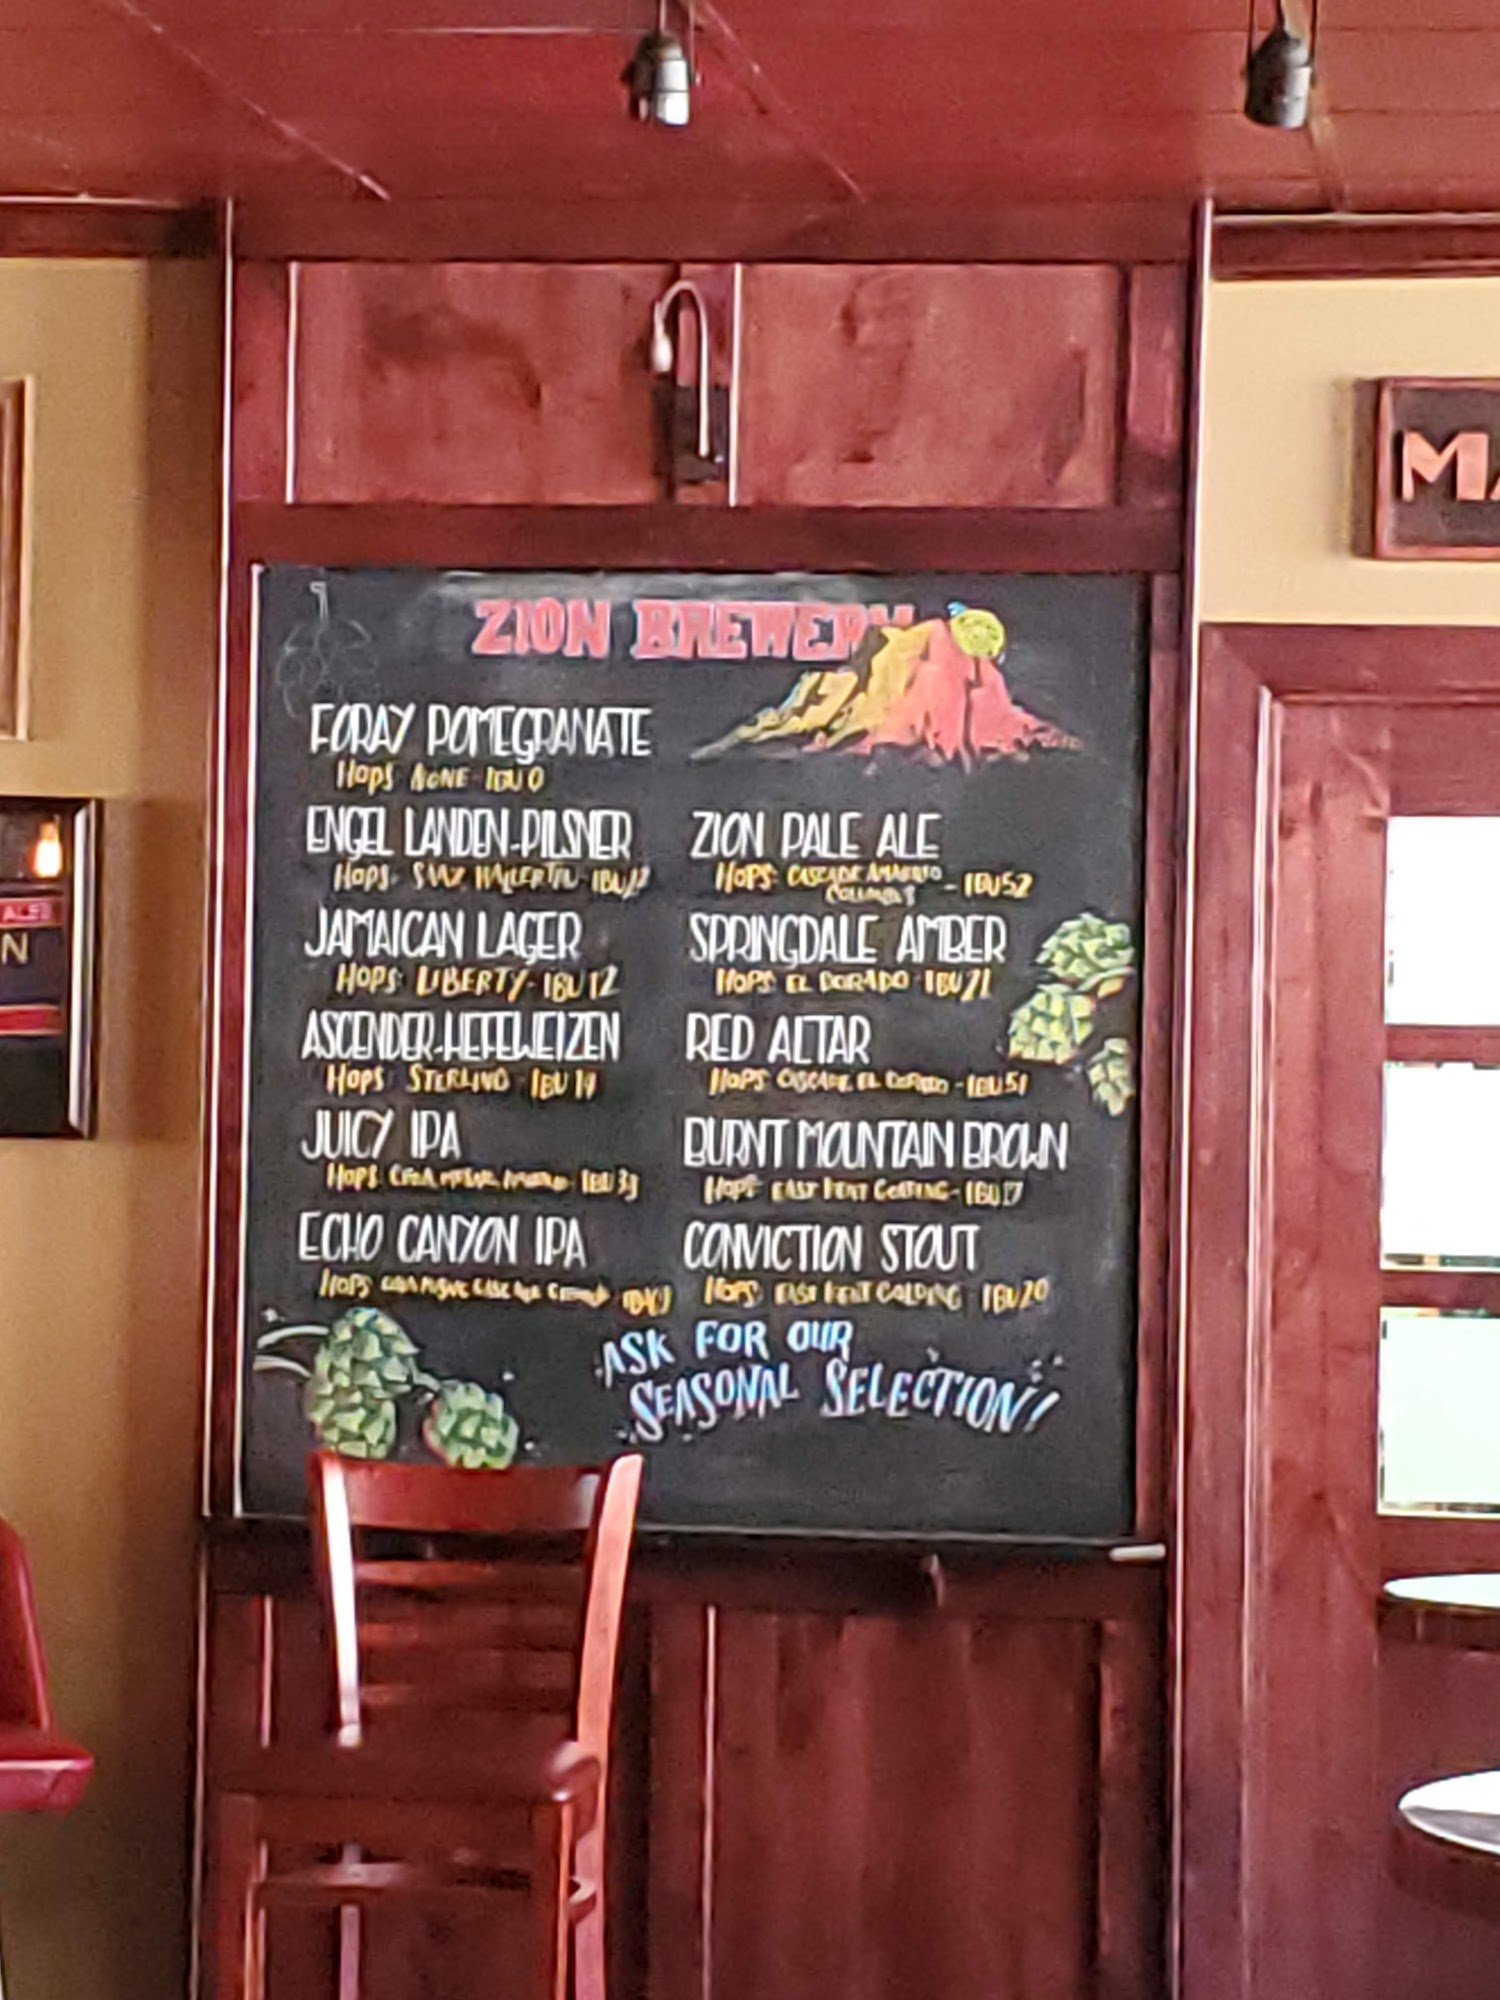 ZION BREWERY
FORAY POMEGRANATE
HOPS NONE - IBU 0
ENGEL LANDEN-PILSNER
HOPS - SAAZ, - IBU 12
JAMAICAN LAGER
HOPS: LIBERTY - IBU 12
ASCENDER-HEFEWEIZEN
HOPS STERLING - IBU 14
JUICY IPA
HOPS - IBU 33
ECHO CANYON IPA
HOPS
ZION PALE ALE
HOPS: CASCADE AMARILLO
COLUMBUS - IBU 52
SPRINGDALE AMBER
HOPS: EL DORADO - IBU 21
RED ALTAR
HOPS CASCADE, EL DORADO - IBU 51
BURNT MOUNTAIN BROWN
HOPS: EAST KENT GOLDING - IBU 17
CONVICTION STOUT
HOPS: EAST KENT GOLDING IBU 20
ASK FOR OUR
SEASONAL SELECTION!
MA
ALES
N